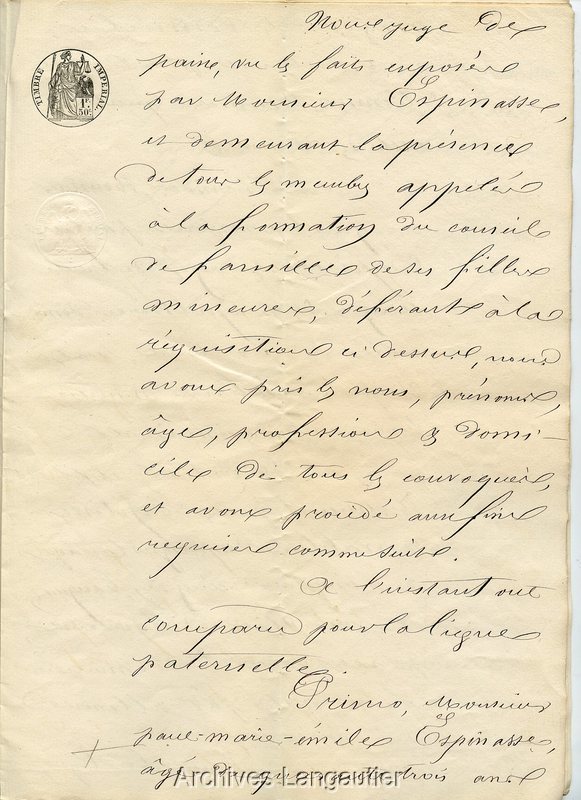 Nous juge de
paix, vu les faits exposés
par Monsieur Espinasse,
et demeurant la présence
de tous les membres appelés
à la formation du conseil
de famille de ses filles
mineures, déférant à la
réquisition ci dessus, nous
avons pris les noms, prénoms,
âge, profession & domi-
cile de tous les convoqués,
et avons procédé aux fins
requises comme suit.
A l'instant ont
comparu pour la ligne
paternelle
Primo, Monsieur
paul-marie-émile Espinasse,
âgé de quarante trois ans
TIMBRE IMPERIAL
1F.
50c.
Archives Langautier